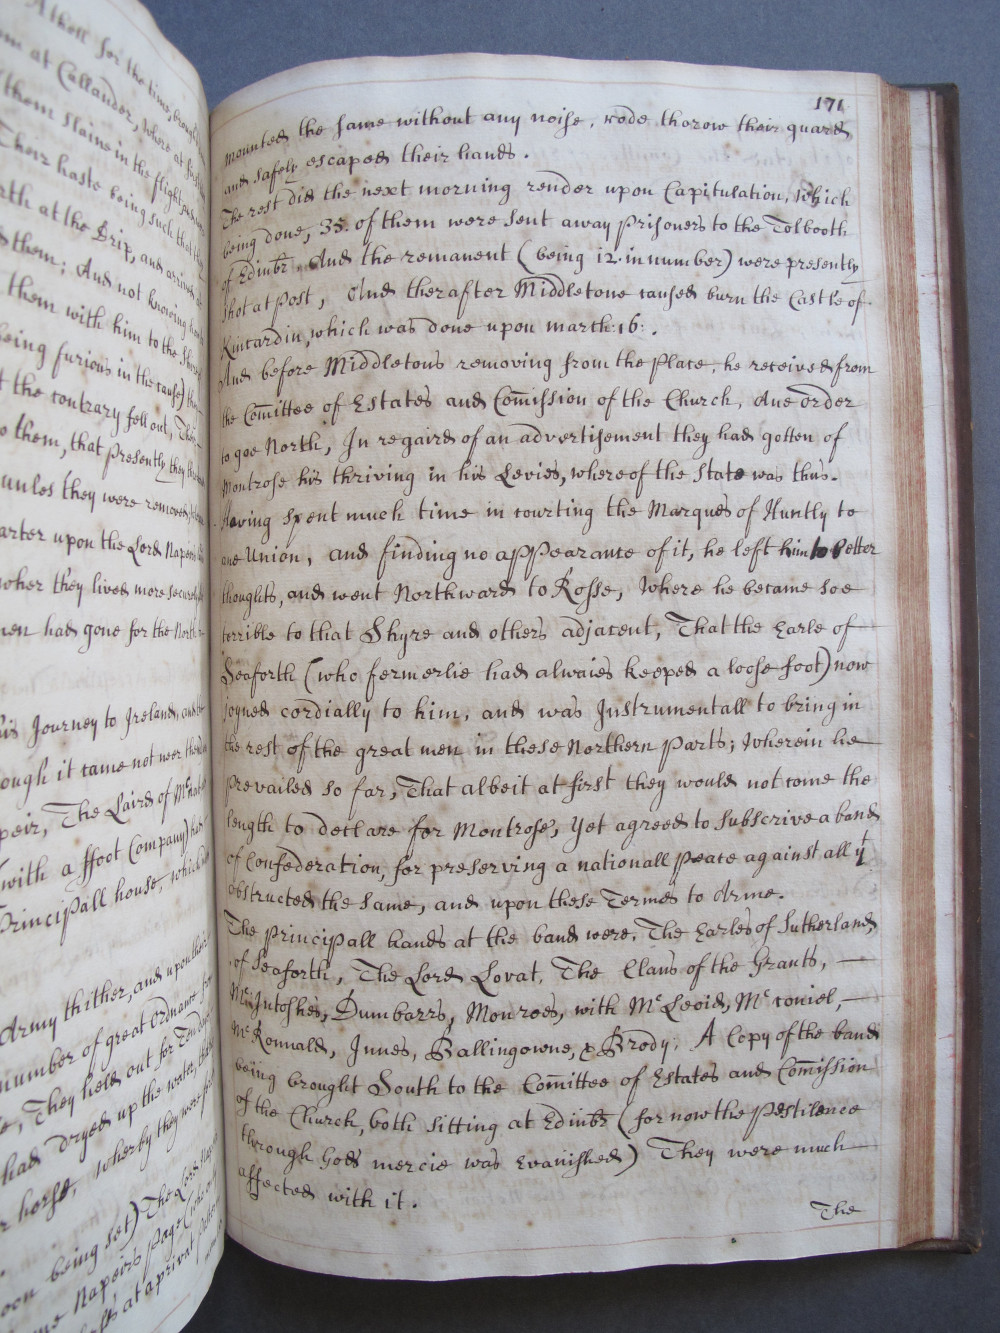 Atholl for the time, brough
om at Callander, where at
them slaine in the flight,
Their haste being such that
rth at the Brix, and arrived
d them; And not knowing
them with him to the
eing furious in the cause) they
t the contrary fell out, The
o them, that presently they
unles they were removed,
arter upon the Lord Napeirs
wher they lived more securely
men had gone for the North
is Journey to Ireland, and
ough it came not neer the
peir, The Laird of Mc
(with a ffoot Company)
Principall house, which
Army thither, and upon their
number of great Ordnance
e, They held out for
had dryed up the water, that
r horse, wherby they were
oon being set) The Lord
me Napeirs page (who only
at a privat
171
mounted the same without any noise, rode thorow their guard
and safely escaped their hands.
The rest did the next morning render upon Capitulation, Which
being done, 35. of them were sent away prisoners to the Tolbooth
of Edinbr. And the remanent (being 12. in number) were presently
shot at post, And therafter Middletone caused burn the Castle of
Kincardin, which was done upon march: 16:.
And before Middletons removing from the place, he received from
the Com̄ittee of Estates and Com̄ission of the Church, Ane order
to goe North, In regaird of an advertisement they had gotten of
Montrose his thriving in his Levies, whereof the State was this.
Having spent much time in courting the Marques of Huntly to
ane Union, and finding no appearance of it, he left him to better
thoughts, and went Northward to Rosse, Where he became soe
terrible to that Shyre and others adjacent, That the Earle of
Seaforth (who fermerlie had alwaies keeped a loose foot) now
joyned cordially to him, and was Instrumentall to bring in
the rest of the great men in these Northern parts; Wherein he
prevailed so far, That albeit at first they would not come the
length to declare for Montrose, Yet agreed to subscrive a band
of Confederation, for preserving a nationall peace against all yt
obstructed the same, and upon these Termes to Arme.
The principall hands at the band were, The Earles of Sutherland,
of Seaforth, The Lord Lovat, The Clans of the Grants,
McIntoshes, Dumbarrs, Monroes, with Mc Leoid, Mc coniel,
Mc Ronnald, Innes, Ballingowne, & Brody; A Copy of the band
being brought South to the Com̄ittee of Estates and Com̄ission
of the Church, both sitting at Edinbr (for now the pestilence
through Gods mercie was Evanished) They were much
affected with it.
The